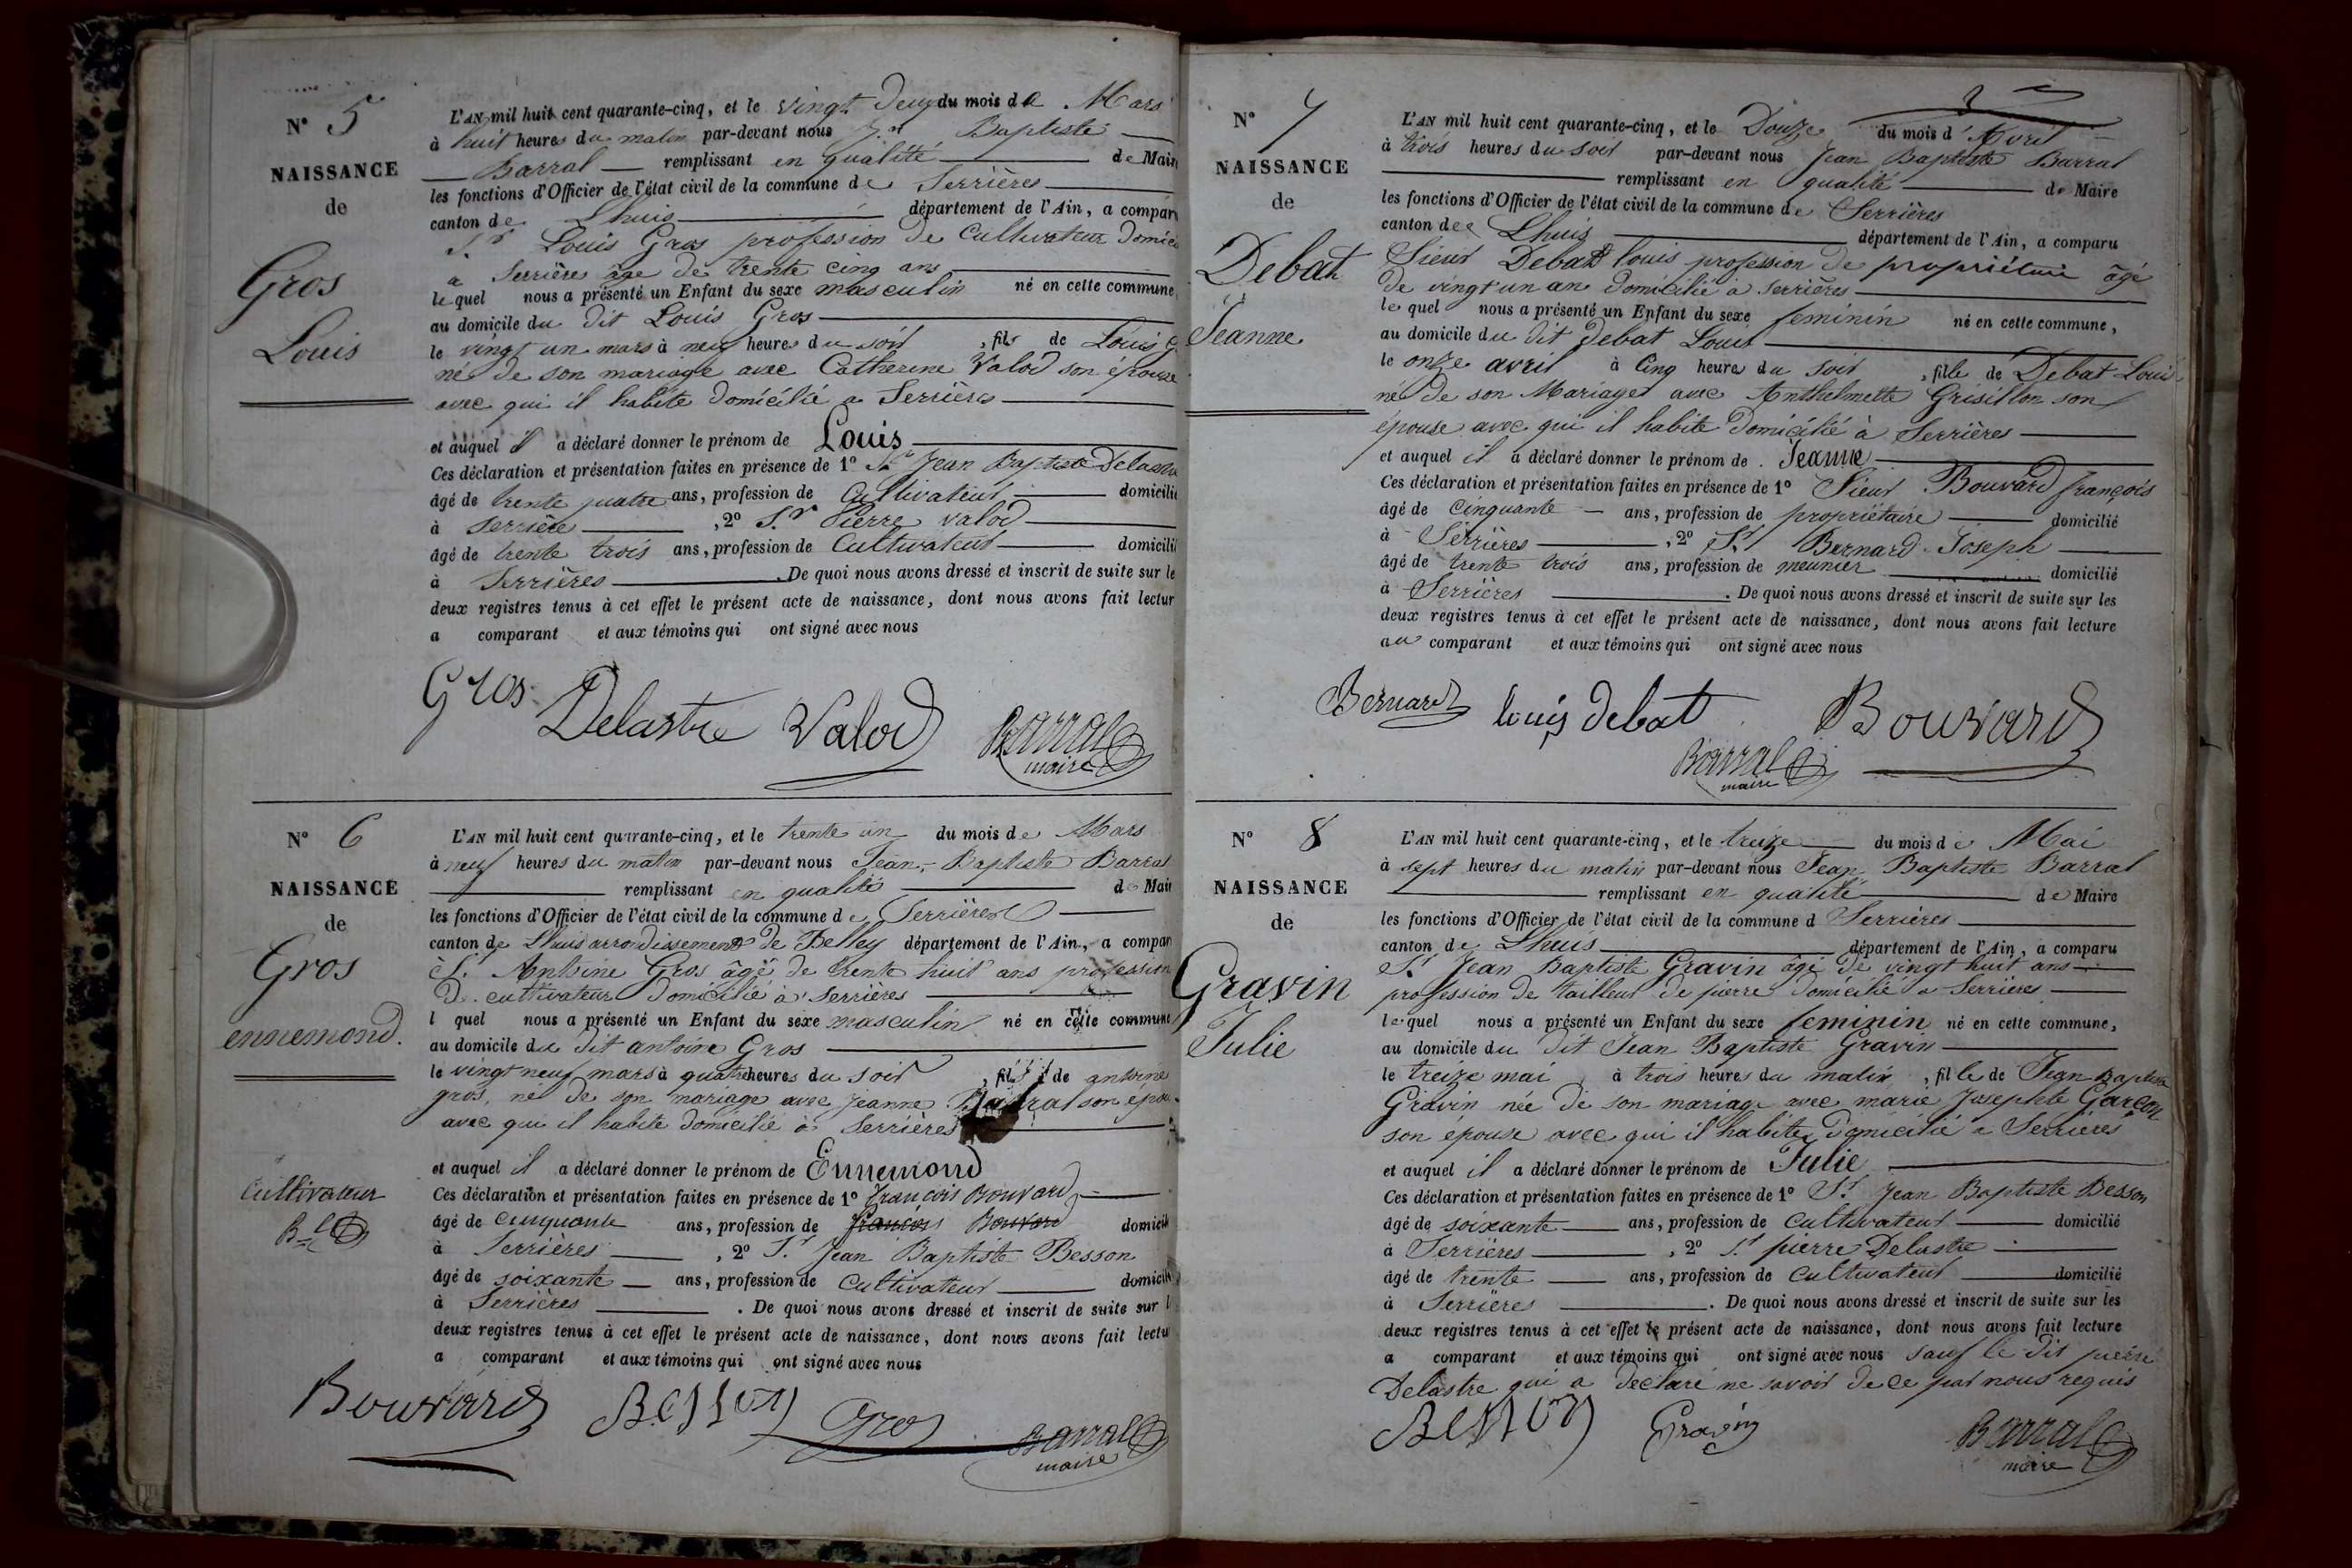 N° 5
NAISSANCE
de
Gros
Louis
L'AN mil huit cent quarante-cinq, et le vingt deux du mois de Mars
à huit heures du matin par-devant nous Jn Baptiste
Barral remplissant en qualité de Mair
les fonctions d'Officier de l'état civil de la commune de Serrières
canton de Lhuis département de l'Ain, a compar
Sr Louis Gros profession de Cultivateur domici
a Serrières âge de trente cinq ans
lequel nous a présenté un Enfant du sexe masculin né en cette commune,
au domicile du dit Louis Gros
le vingt un mars à neuf heures du soir, fils de Louis G
né de son mariage avec Catherine Valod son épouse
avec qui il habite domicilié a Serrières
et auquel il a déclaré donner le prénom de Louis
Ces déclaration et présentation faites en présence de 1° Sr Jean Baptiste Delastre
âgé de trente quatre ans, profession de Cultivateur domicilié
à Serrière, 2° Sr Pierre valod
âgé de trente trois ans, profession de Cultivateur domicilié
à Serrières. De quoi nous avons dressé et inscrit de suite sur le
deux registres tenus à cet effet le présent acte de naissance, dont nous avons fait lectur
a comparant et aux témoins qui ont signé avec nous
Gros Delastre Valod Barral
maire
N° 6
NAISSANCE
de
Gros
ennemond.
Cultivateur
L'AN mil huit cent quarante-cinq, et le trente un du mois de Mars
à neuf heures du matin par-devant nous Jean-Baptiste Barral
remplissant en qualité de Mair
les fonctions d'Officier de l'état civil de la commune de Serrières
canton de Lhuis arrondissement de Belley département de l'Ain, a compar
Sr Antoine Gros âgé de trente huit ans profession
de cultivateur domicilié à Serrières
l quel nous a présenté un Enfant du sexe masculin né en cette commune
au domicile du dit antoine Gros
le vingt neuf mars à quatre heures du soir, fils de antoine
gros, né de son mariage avec Jeanne Barral son épou
avec qui il habite domicilié à Serrières
et auquel il a déclaré donner le prénom de Ennemond
Ces déclaration et présentation faites en présence de 1° François Bouvard
âgé de cinquante ans, profession de François Bouvard domicilié
à Serrières, 2° Sr Jean Baptiste Besson
âgé de soixante ans, profession de Cultivateur domicilié
à Serrières. De quoi nous avons dressé et inscrit de suite sur l
deux registres tenus à cet effet le présent acte de naissance, dont nous avons fait lectu
a comparant et aux témoins qui ont signé avec nous
Bouvard Besson Gros Barral
maire
N° 7
NAISSANCE
de
Debat
Jeanne
L'AN mil huit cent quarante-cinq, et le Douze du mois d'Avril
à trois heures du soir par-devant nous Jean Baptiste Barral
remplissant en qualité de Maire
les fonctions d'Officier de l'état civil de la commune de Serrières
canton de Lhuis département de l'Ain, a comparu
Sieur Debat louis profession de propriétaire âgé
de vingt un an domicilié a serrières
lequel nous a présenté un Enfant du sexe feminin né en cette commune,
au domicile du dit Debat Louis
le onze avril à cinq heures du soir, fille de Debat Louis
né de son Mariage avec Anthelmette Grisillon son
épouse avec qui il habite domicilié à Serrières
et auquel il a déclaré donner le prénom de Jeanne
Ces déclaration et présentation faites en présence de 1° Sieur Bouvard françois
âgé de cinquante ans, profession de propriétaire domicilié
à Serrières, 2° Sr Bernard Joseph
âgé de trente trois ans, profession de meunier domicilié
à Serrières. De quoi nous avons dressé et inscrit de suite sur les
deux registres tenus à cet effet le présent acte de naissance, dont nous avons fait lecture
au comparant et aux témoins qui ont signé avec nous
Bernard louis debat Bouvard
Barral
maire
N° 8
NAISSANCE
de
Gravin
Julie
L'AN mil huit cent quarante-cinq, et le treize du mois de Mai
à sept heures du matin par-devant nous Jean Baptiste Barral
remplissant en qualité de Maire
les fonctions d'Officier de l'état civil de la commune d Serrières
canton de Lhuis département de l'Ain, a comparu
Sr Jean Baptiste Gravin âgé de vingt huit ans
profession de tailleur de pierre domicilié a Serrières
lequel nous a présenté un Enfant du sexe feminin né en cette commune,
au domicile du dit Jean Baptiste Gravin
le treize mai à trois heures du matin, fille de Jean Baptiste
Gravin née de son mariage avec marie Josephte Garçon
son epouse avec qui il habite domicilié a Serrières
et auquel il a déclaré donner le prénom de Julie
Ces déclaration et présentation faites en présence de 1° Sr Jean Baptiste Besson
âgé de soixante ans, profession de Cultivateur domicilié
à Serrières, 2° Sr pierre Delastre
âgé de trente ans, profession de Cultivateur domicilié
à Serrières. De quoi nous avons dressé et inscrit de suite sur les
deux registres tenus à cet effet le présent acte de naissance, dont nous avons fait lecture
a comparant et aux témoins qui ont signé avec nous sauf le dit pierre
Delastre qui a declaré ne savoir de ce par nous requis
Besson Gravin Barral
maire